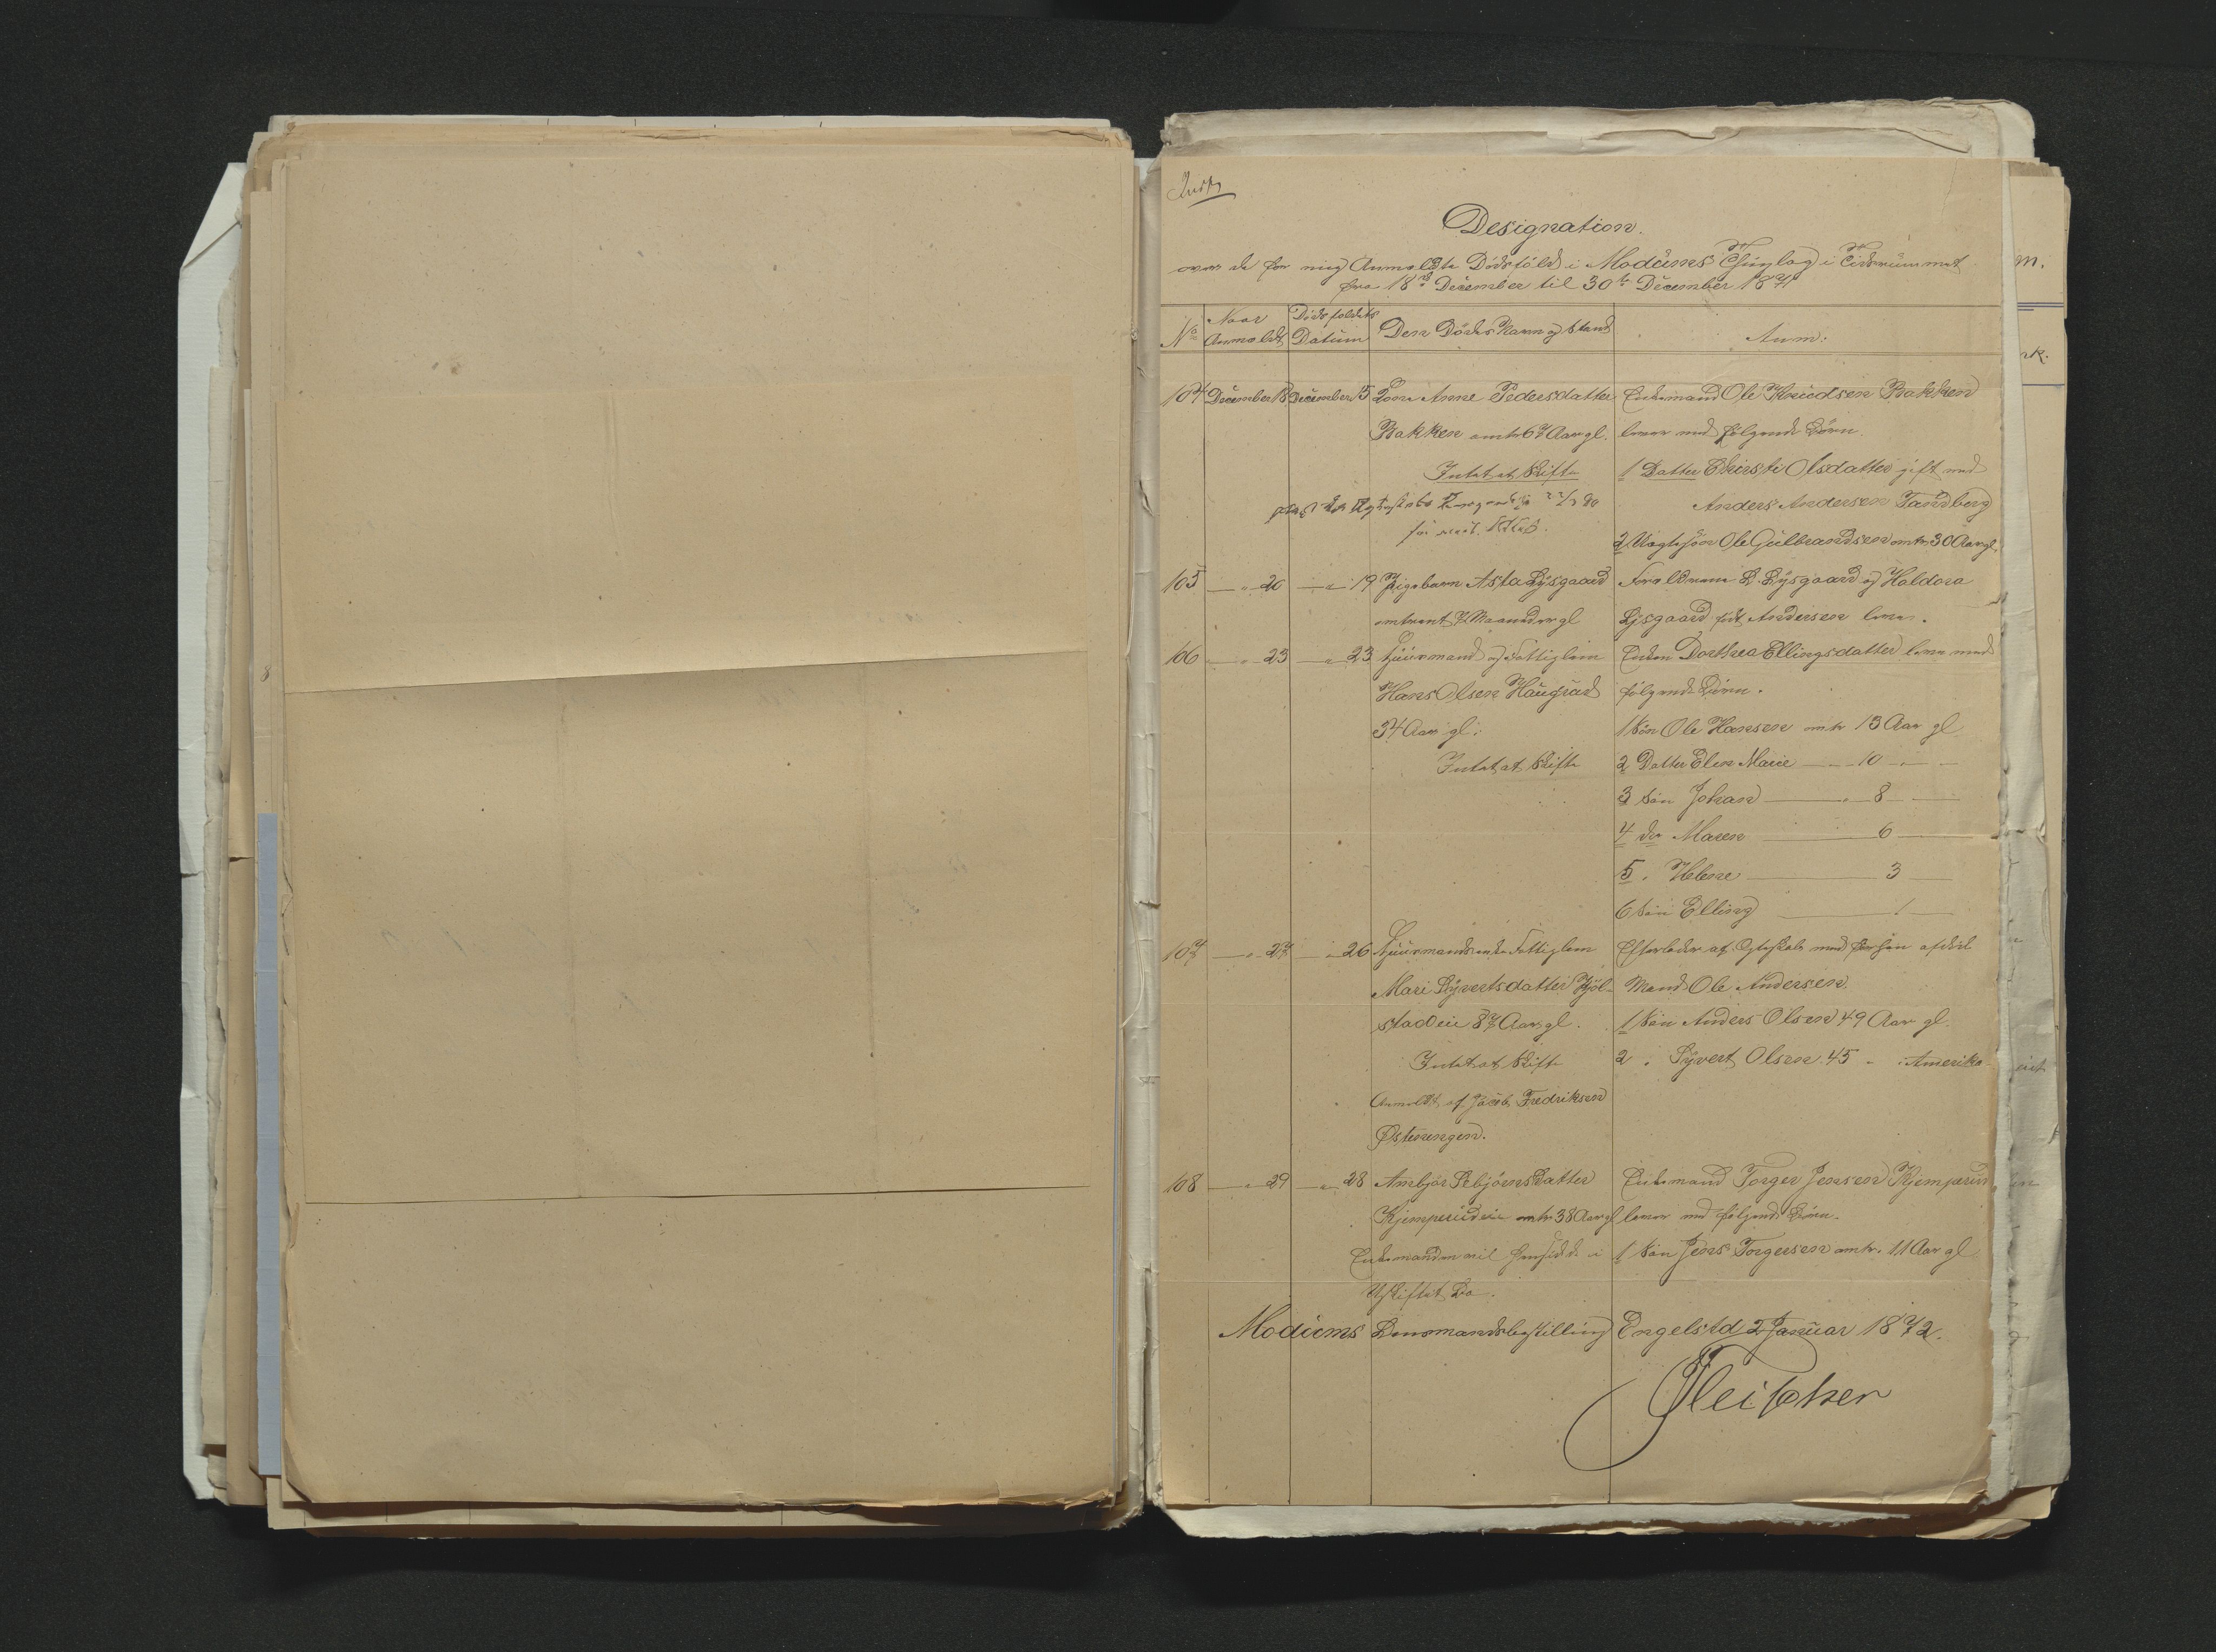 Designation.
over de for mig Anmeldte Dödsfald i Modums Thinglag i Tidsrummet
fra 18de December til 30te December 1871
No
Naar Anmeldt
Dödsfaldets Datum
Den Dödes Navn og Stand
Anm:
104 December 18 December 15 Kone Anne Pedersdatter Enkemand Ole Knudsen Bakken
Bakken omtr 67 Aar gl. lever med følgende Børn
Intet at Skifte 1 Datter Christi Olsdatter gift med
Anders Andersen Tandberg
2 Ole Gulbrandsen omtr 30 Aar gl.
105 — " 20 — " 19 Pigebarn Asta Lysgaard Forældrene L. Lysgaard og Haldora
omtrent 7 Maaneder gl Lysgaard født Andersen lever.
106 — " 23 — " 23 Huusmand og Fattiglem Enken Dorthea Ellingsdatter lever med
Hans Olsen Haugrud følgende Børn.
34 Aar gl. 1 Søn Ole Hansen omtr 13 Aar gl
Intet at Skifte 2 Datter Elen Marie — 10 —
3 Søn Johan — 8 —
4 Dr Maren — 6 —
5 " Helene — 3 —
6 Søn Elling — 1 —
107 — " 27 — " 26 Huusmandsenke Fattiglem Efterlader af Egteskab med afdøde
Mari Syvertsdatter Kjöl- Mand Ole Andersen
stadeie 87 Aar gl. 1 Søn Anders Olsen 49 Aar gl.
Intet at Skifte 2 " Syvert Olsen 45 " i Amerika
Anmeldt af Jacob Fredriksen
Østenengen.
108 — " 29 — " 28 Anbjør Sebjørnsdatter Enkemand Torger Jensen Kjemperud
Kjemperudeie omtr 38 Aar gl lever med følgende Børn.
Enkemanden vil hensidde i 1 Søn Jens Torgersen omtr. 11 Aar gl
Uskiftet Bo.
Modums Lensmandsbestilling Engelstd 2 Januar 1872.
Fleischer